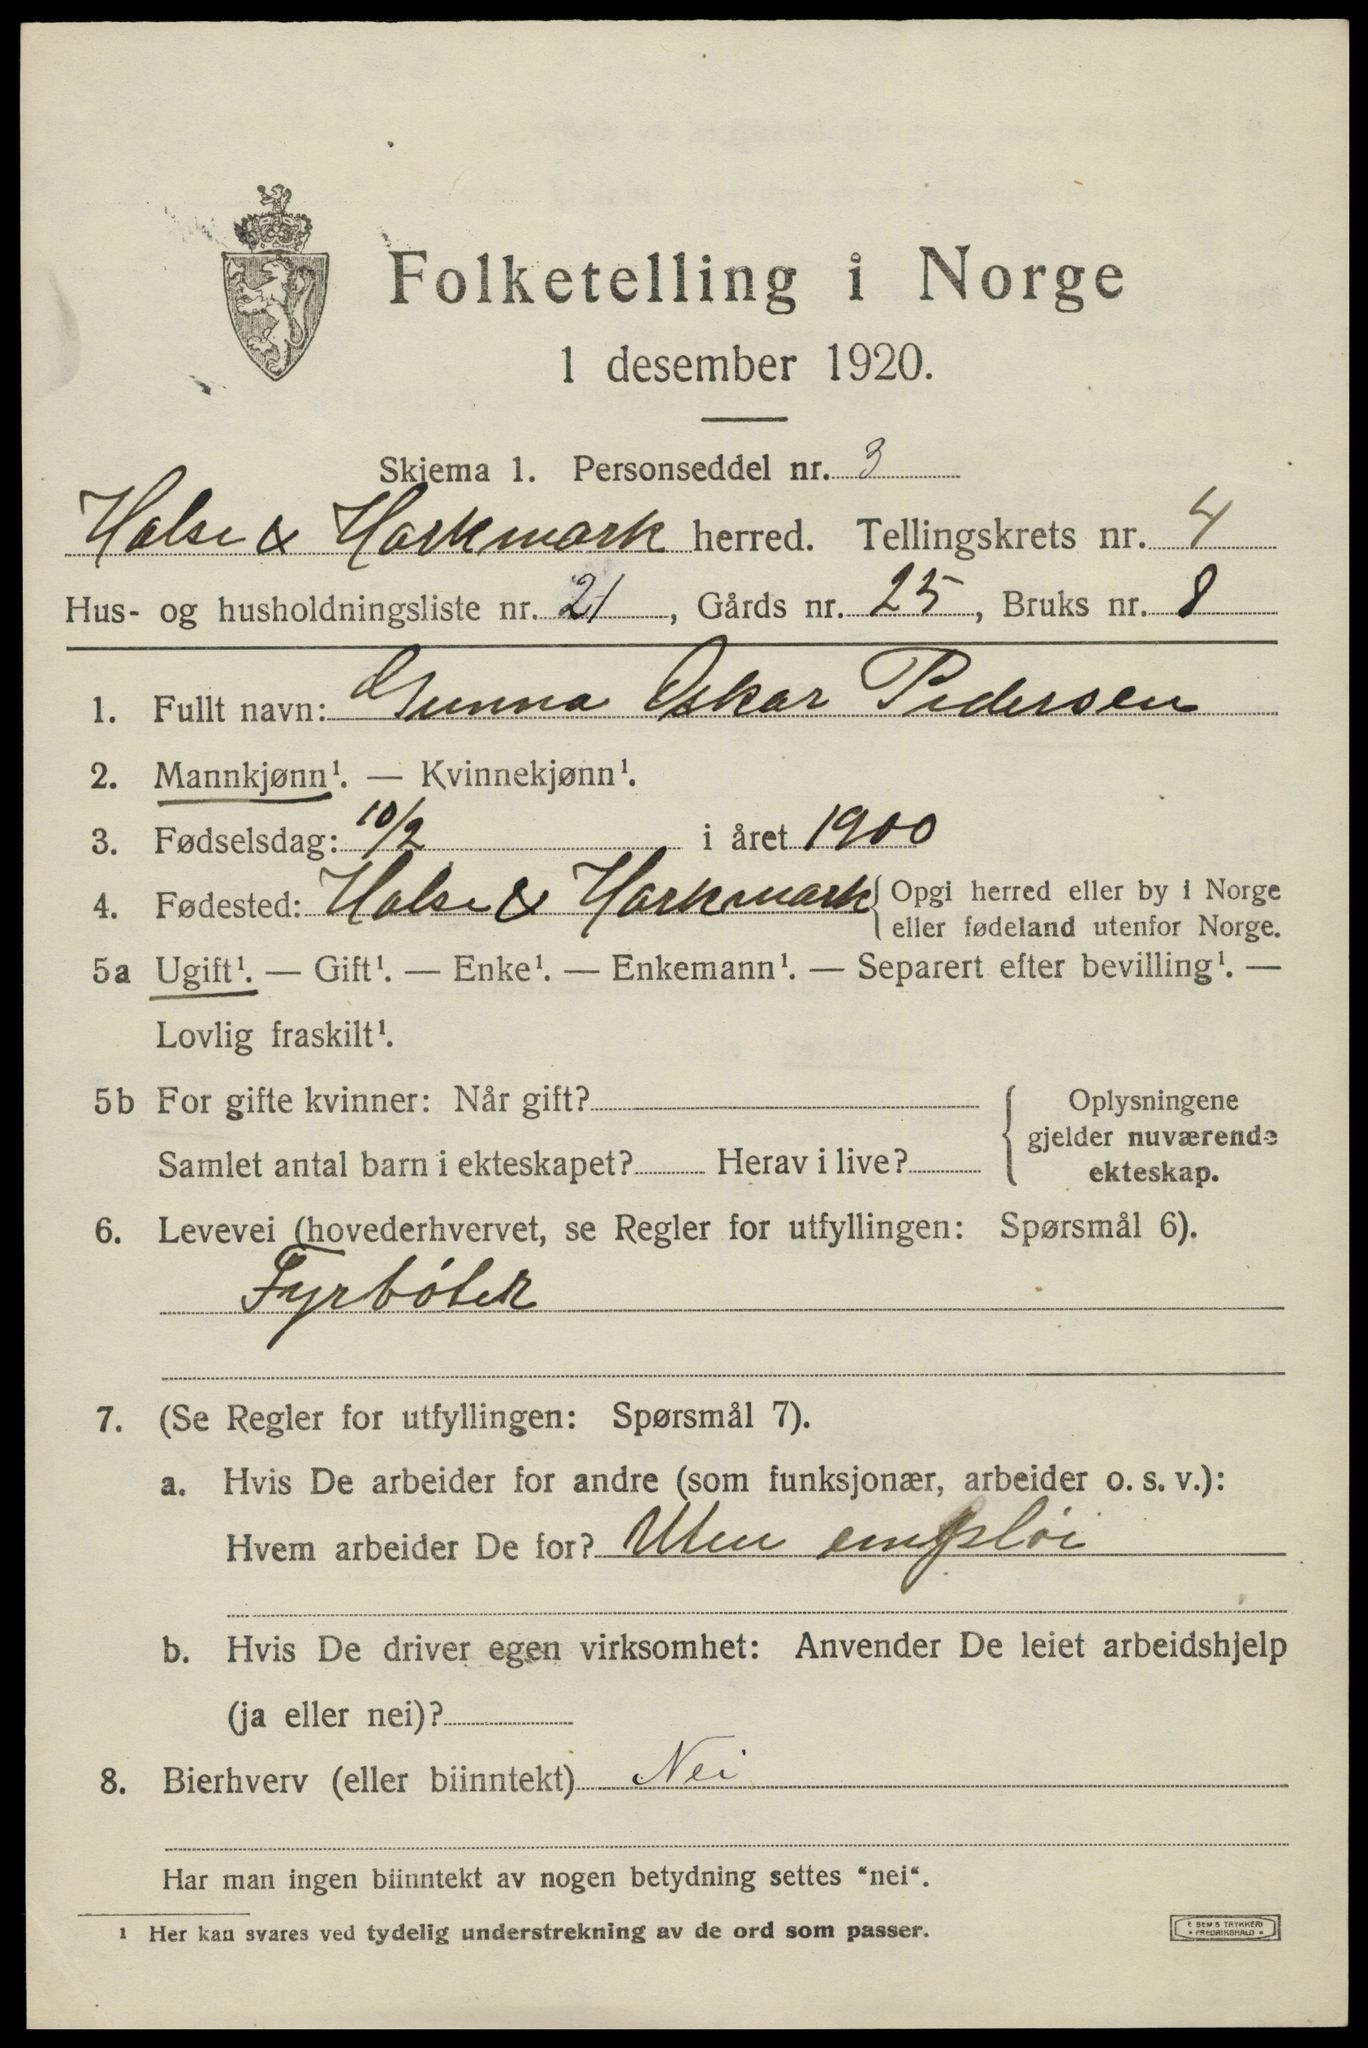 Folketelling i Norge
1 desember 1920.
Skjema 1. Personseddel nr. 3
Halse & Harkmark herred. Tellingskrets nr. 4
Hus- og husholdningsliste nr. 21, Gårds nr. 25, Bruks nr. 8
1. Fullt navn: Gunna Oskar Pedersen
2. Mannkjønn¹. — Kvinnekjønn¹.
3. Fødselsdag: 10/2 i året 1900
4. Fødested: Halse & Harkmark { Opgi herred eller by i Norge
eller fødeland utenfor Norge.
5a Ugift¹. — Gift¹. — Enke¹. — Enkemann¹. — Separert efter bevilling¹. —
Lovlig fraskilt¹.
5b For gifte kvinner: Når gift?
Samlet antal barn i ekteskapet? Herav i live?
{ Oplysningene
gjelder nuværende
ekteskap.
6. Levevei (hovederhvervet, se Regler for utfyllingen: Spørsmål 6).
Fyrbøter
7. (Se Regler for utfyllingen: Spørsmål 7).
a. Hvis De arbeider for andre (som funksjonær, arbeider o. s. v.):
Hvem arbeider De for? Uten emploi
b. Hvis De driver egen virksomhet: Anvender De leiet arbeidshjelp
(ja eller nei)?
8. Bierhverv (eller biinntekt) Nei
Har man ingen biinntekt av nogen betydning settes “nei“.
¹ Her kan svares ved tydelig understrekning av de ord som passer.
TRYKKERI
FREDRIKSHALD